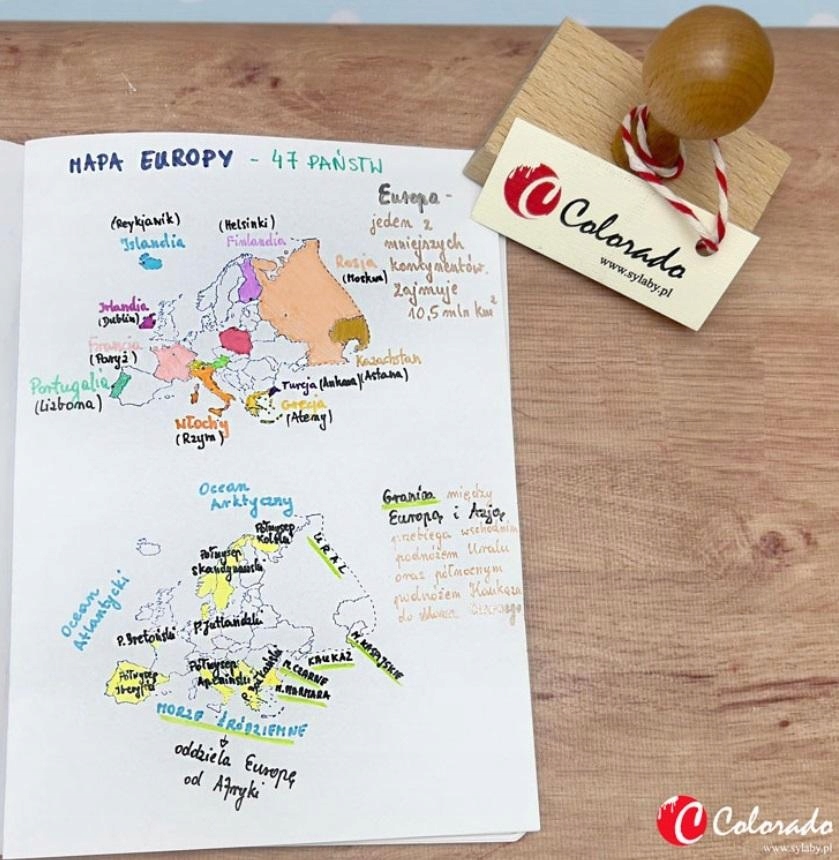 MAPA EUROPY - 47 PAŃSTW
Europa -
jeden z
mniejszych
kontynentów.
Zajmuje
10,5 mln km²
(Reykjawik)
Islandia
(Helsinki)
Finlandia
Rosja
(Moskwa)
Irlandia
(Dublin)
Francja
(Paryż)
Portugalia
(Lizbona)
Kazachstan
(Astana)
Turcja (Ankara)
Grecja
(Ateny)
Włochy
(Rzym)
Colorado
www.sylaby.pl
Ocean
Arktyczny
Półwysep
Kolski
Półwysep
Skandynawski
URAL
Ocean
Atlantycki
P. Jutlandzki
P. Bretoński
Półwysep
Iberyjski
Półwysep
Apeniński
P. Bałkański
KAUKAZ
M. KASPIJSKIE
M. CZARNE
M. MARMARA
MORZE ŚRÓDZIEMNE
oddziela Europę
od Afryki
Granica między
Europą i Azją
przebiega wschodnim
podnóżem Uralu
oraz północnym
podnóżem Kaukazu
do
Colorado
www.sylaby.pl